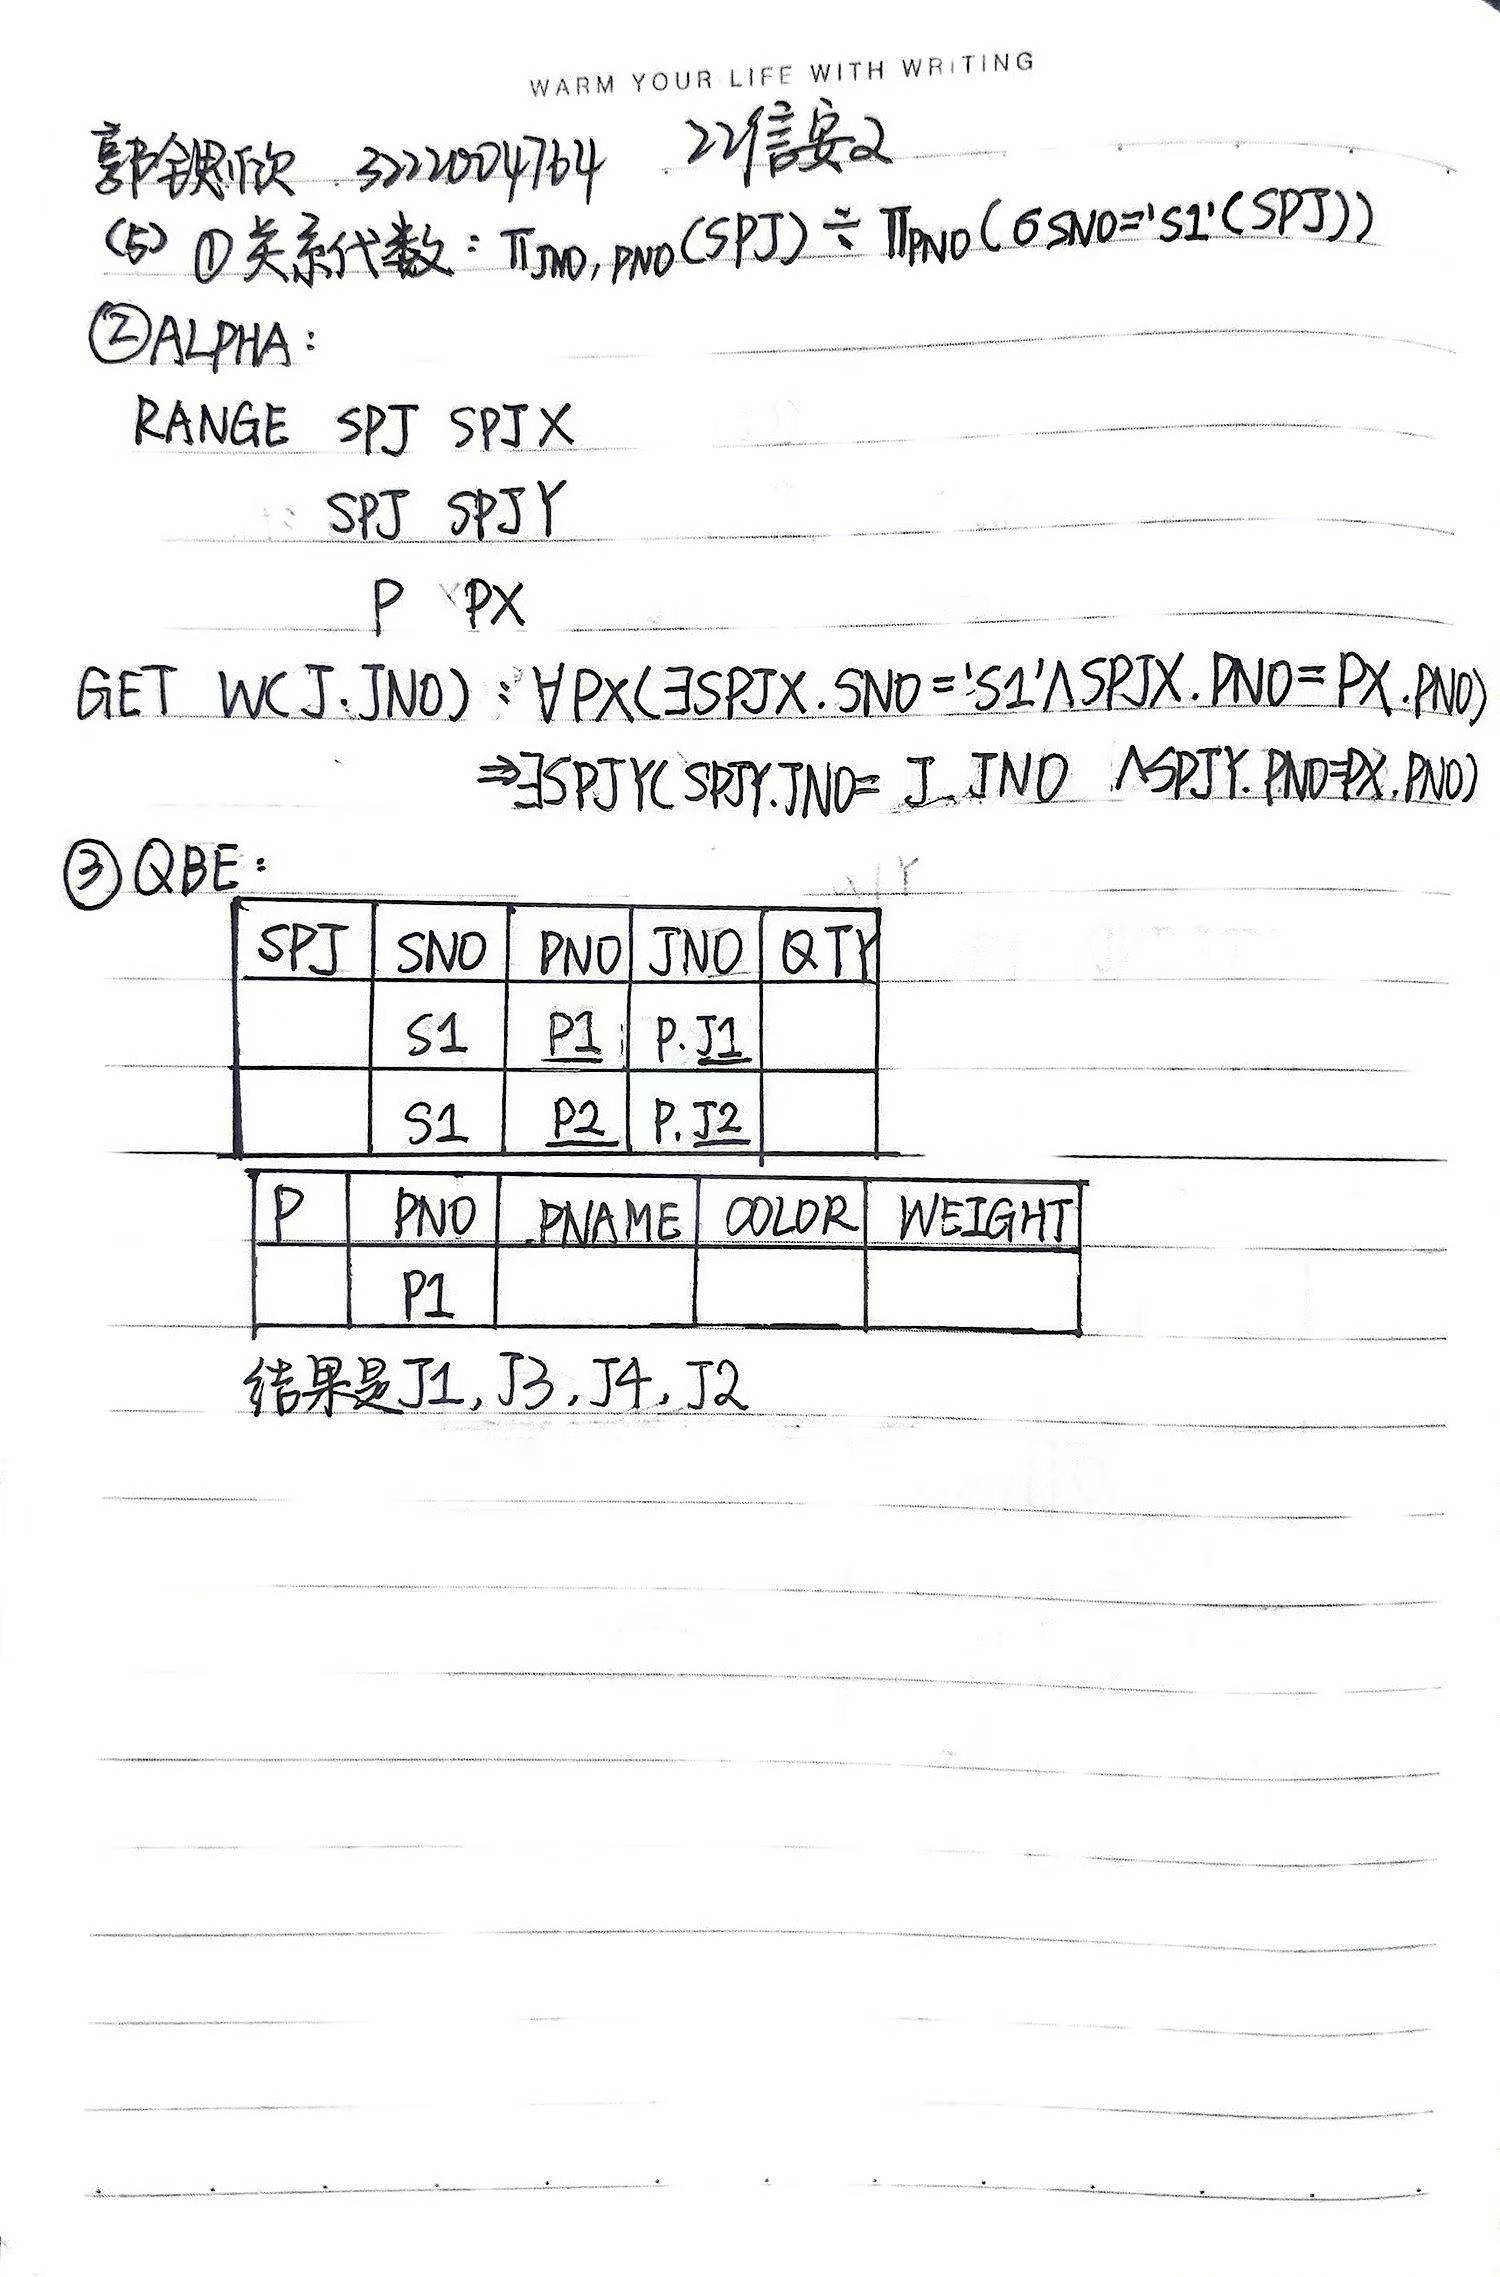 WARM YOUR LIFE WITH WRITING
郭锶欣 3222004764 22信安2
(5) ①关系代数：πJNO,PNO(SPJ)÷πPNO(σSNO='S1'(SPJ))
②ALPHA：
RANGE SPJ SPJX
SPJ SPJY
P PX
GET W(J.JNO)：∀PX(∃SPJX.SNO='S1'∧SPJX.PNO=PX.PNO)
⇒∃SPJY(SPJY.JNO= J.JNO ∧SPJY.PNO=PX.PNO)
③QBE：
SPJ SNO PNO JNO QTY
S1 P1 P.J1
S1 P2 P.J2
P PNO PNAME COLOR WEIGHT
P1
结果是J1,J3,J4,J2